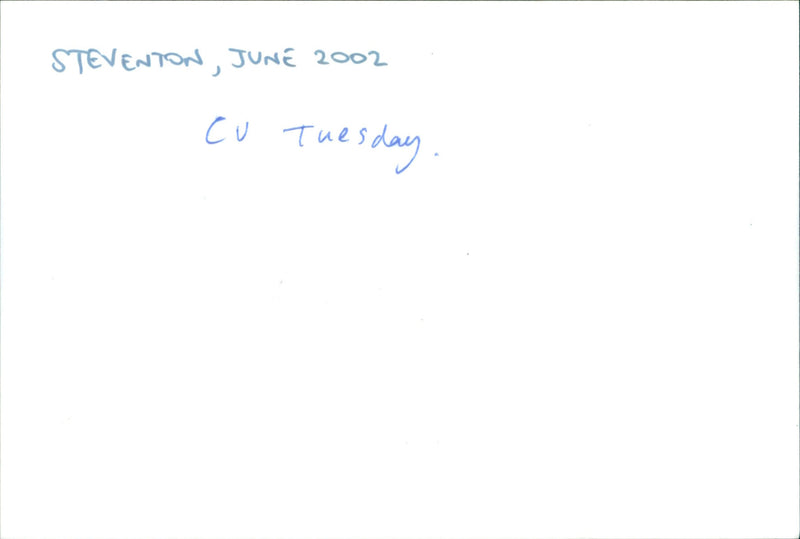 STEVENTON, JUNE 2002
CV Tuesday.